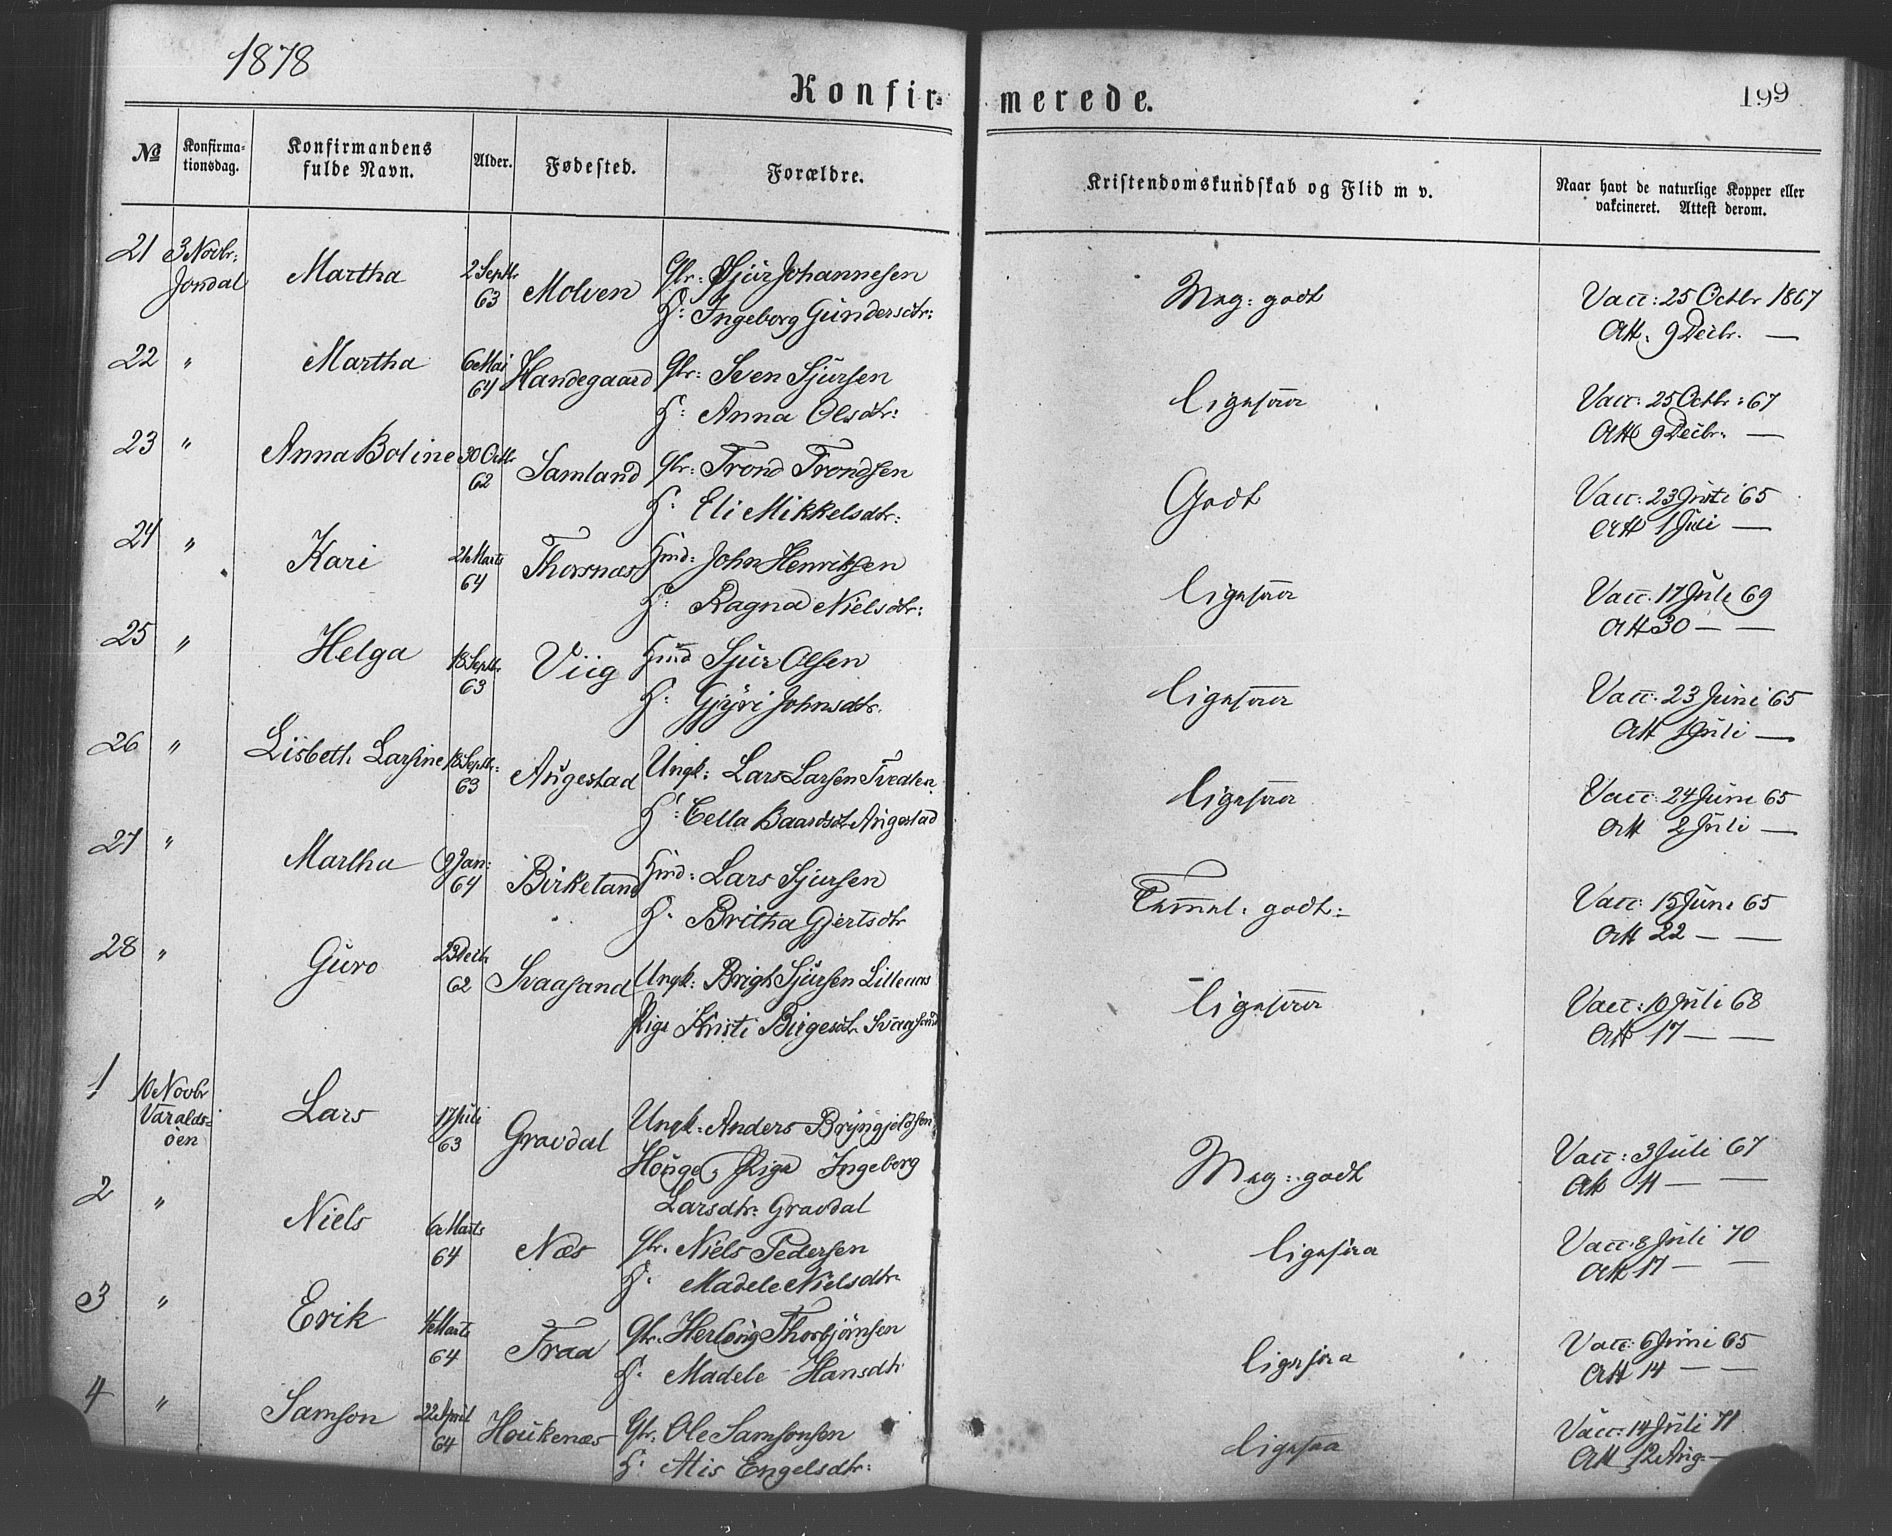 1878
Konfir- merede.
199
No
Konfirma-
tionsdag.
Konfirmandens
fulde Navn.
Alder.
Fødested.
Forældre.
Kristendomskundskab og Flid m v.
Naar havt de naturlige Kopper eller
vakcineret. Attest derom.
21 3 Novbr: Jondal Martha 2 Septbr 63 Molven Gbr: Sjur Johannesen
H: Ingeborg Gundersdtr:
Meg: godt
Vacc: 25 Octbr 1867
Att. 9 Decbr. —
22 " Martha 6 Mai 64 Handegaard Gbr: Sven Sjursen
H: Anna Olsdtr:
ligesaa
Vacc: 25 Octbr: 67
Att 9 Decbr: —
23 " Anna Boline 30 Octbr 62 Samland Gbr: Trond Trondsen
H: Eli Mikkelsdtr:
Godt
Vacc: 23 Juni 65
Att 1 Juli —
24 " Kari 21 Marts 64 Thorsnæs Hmd: John Henriksen
H: Ragna Nielsdtr:
ligesaa
Vacc. 17 Juli 69
Att 30 — —
25 " Helga 18 Septbr. 63 Viig Hmd Sjur Olsen
H: Gjyri Johnsdtr.
ligesaa
Vacc. 23 Juni 65
Att 1 Juli —
26 " Lisbeth Larsine 18 Septbr: 63 Augestad Ungk: Lars Larsen Tvedten
H: Cella Baardsdt Augestad
ligesaa
Vacc: 24 Juni 65
Att 2 Juli —
27 " Martha 9 Jan: 64 Birkeland Hmd: Lars Sjursen
H. Britha Gjertsdtr
Temmel. godt:
Vacc: 15 Juni 65
Att 22 — —
28 " Guro 23 Decbr 62 Svaasand Ungk: Brigt Sjursen Lillenæs
Pige Kristi Birgesdtr. Svaasand
ligesaa
Vacc: 10 Juli 68
Att 17 — —
1 10 Novbr Varalds-
öen Lars 17 Juli 63 Gravdal Ungk: Anders Bryngjeldsen
Houge, Pige Ingeborg
Larsdtr: Gravdal
Meg: godt
Vacc: 3 Juli 67
Att 11 — —
2 " Niels 6 Marts 64 Næs Gbr. Niels Pedersen
H. Madele Nielsdtr
ligesaa
Vacc: 8 Juli 70
Att 17 — —
3 " Erik Marts 64 Traa Gbr. Thorbjörnsen
H. Madele Hansdtr
ligesaa
Vacc: 6 Juni 65
Att 14 — —
4 " Samson 22 April 64 Houkenæs Gbr. Ole Samsonsen
H. Engelsdtr:
ligesaa
Vacc: 14 Juli 71
Att 12 Aug. —